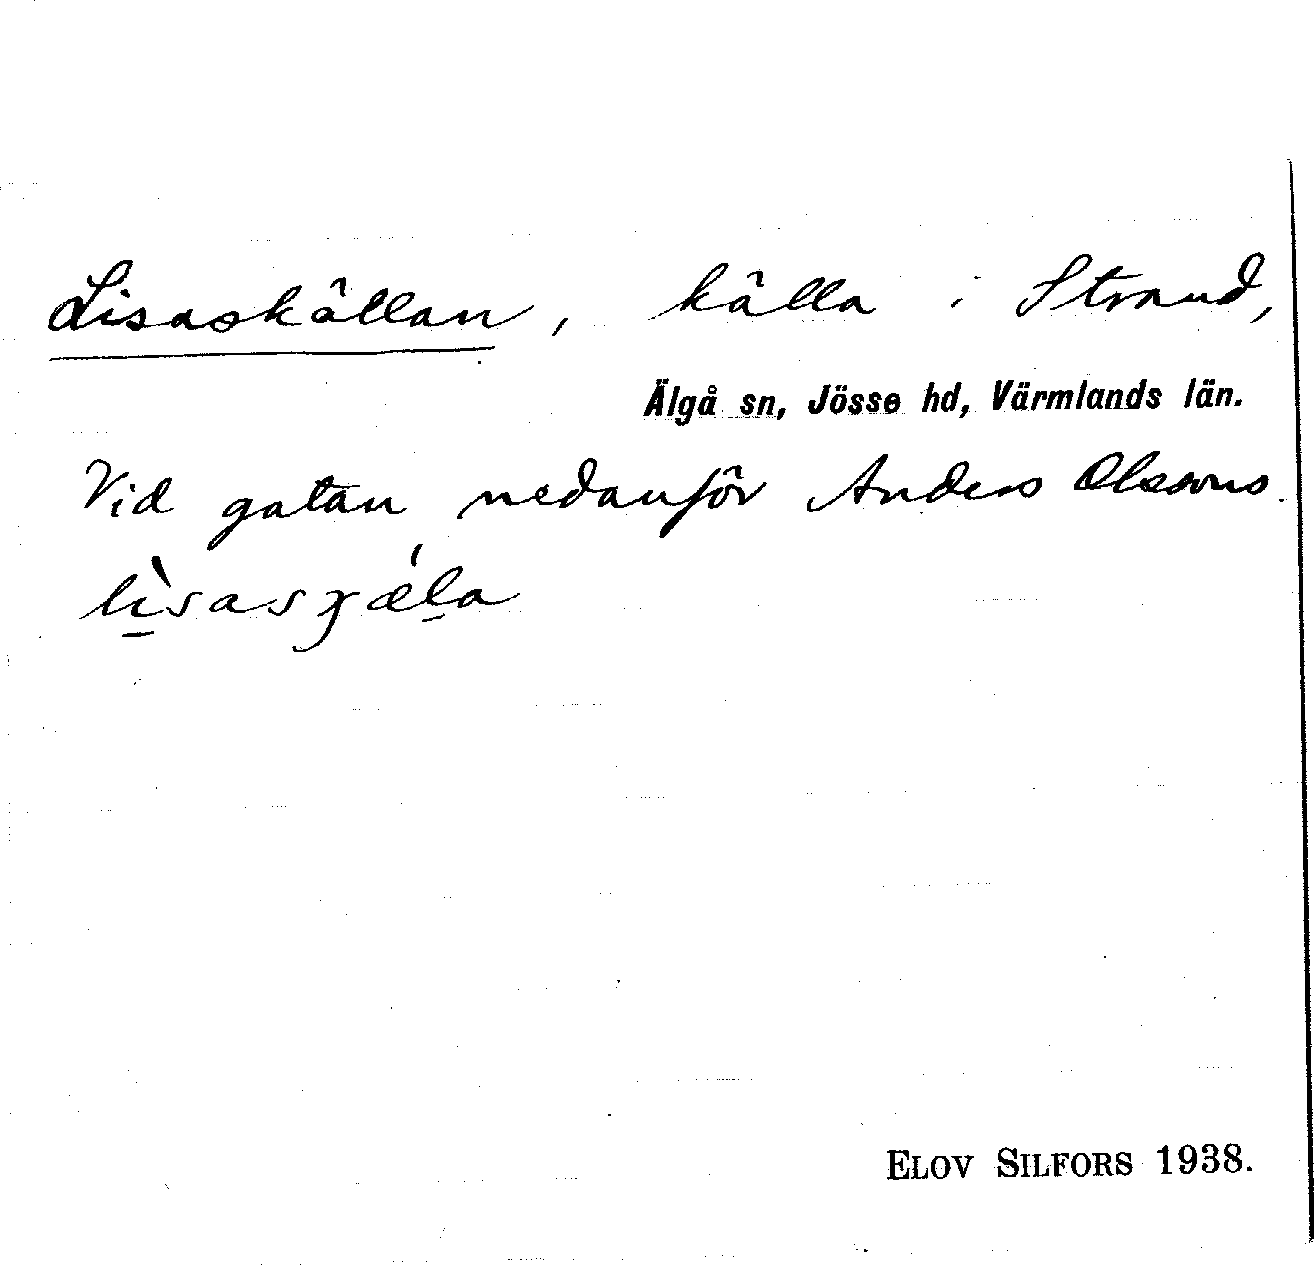 Lisaskällan, källa i Strand,
Älgå sn, Jösse hd, Värmlands län.
Vid gatan nedanför Anders Olssons.
ELOV SILFORS 1938.